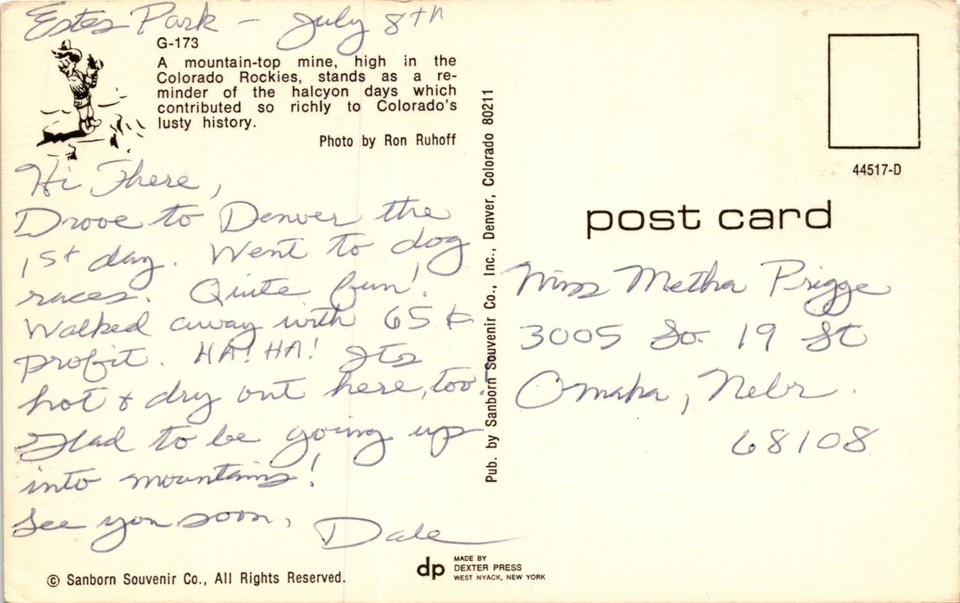 Estes Park - July 8th
G-173
A mountain-top mine, high in the
Colorado Rockies, stands as a re-
minder of the halcyon days which
contributed so richly to Colorado's
lusty history.
Photo by Ron Ruhoff
Hi There,
Drove to Denver the
1st day. Went to dog
races. Quite fun!
Walked away with 65¢
profit. HA! HA! Its
hot & dry out here, too!
Glad to be going up
into mountains!
See you soon,
Dale
© Sanborn Souvenir Co., All Rights Reserved.
Pub. by Sanborn Souvenir Co., Inc., Denver, Colorado 80211
dp
MADE BY
DEXTER PRESS
WEST NYACK, NEW YORK
44517-D
post card
Miss Metha Prigge
3005 So. 19 St
Omaha, Nebr.
68108